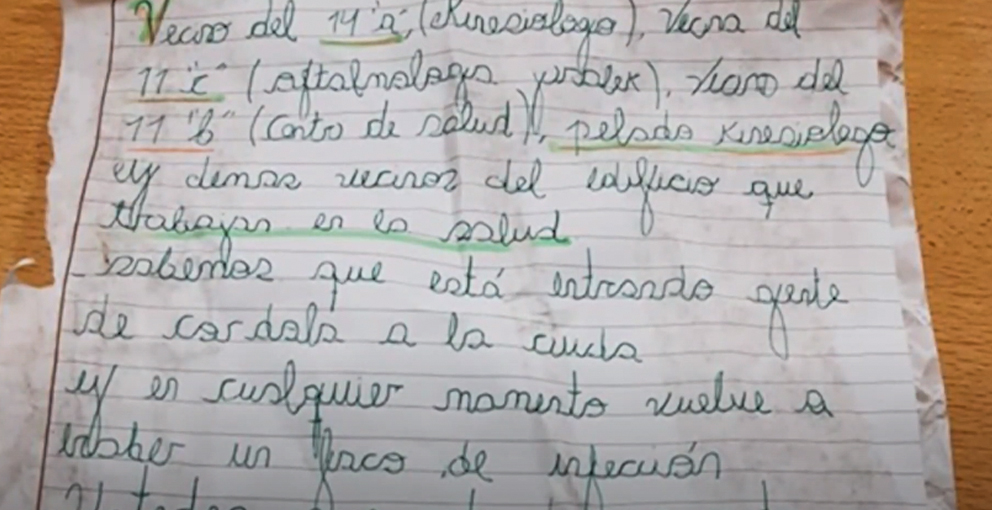 Vecino del 14 "a", (Kinesiologo), Vecina del
11 "c" (oftalmologa), vecino del
11 "b" (Centro de salud), pelado Kinesiologo
y demas vecinos del edificio que
trabajan en la salud
sabemos que está entrando gente
de cordoba a la
y en cualquier momento vuelve a
haber un foco de infección